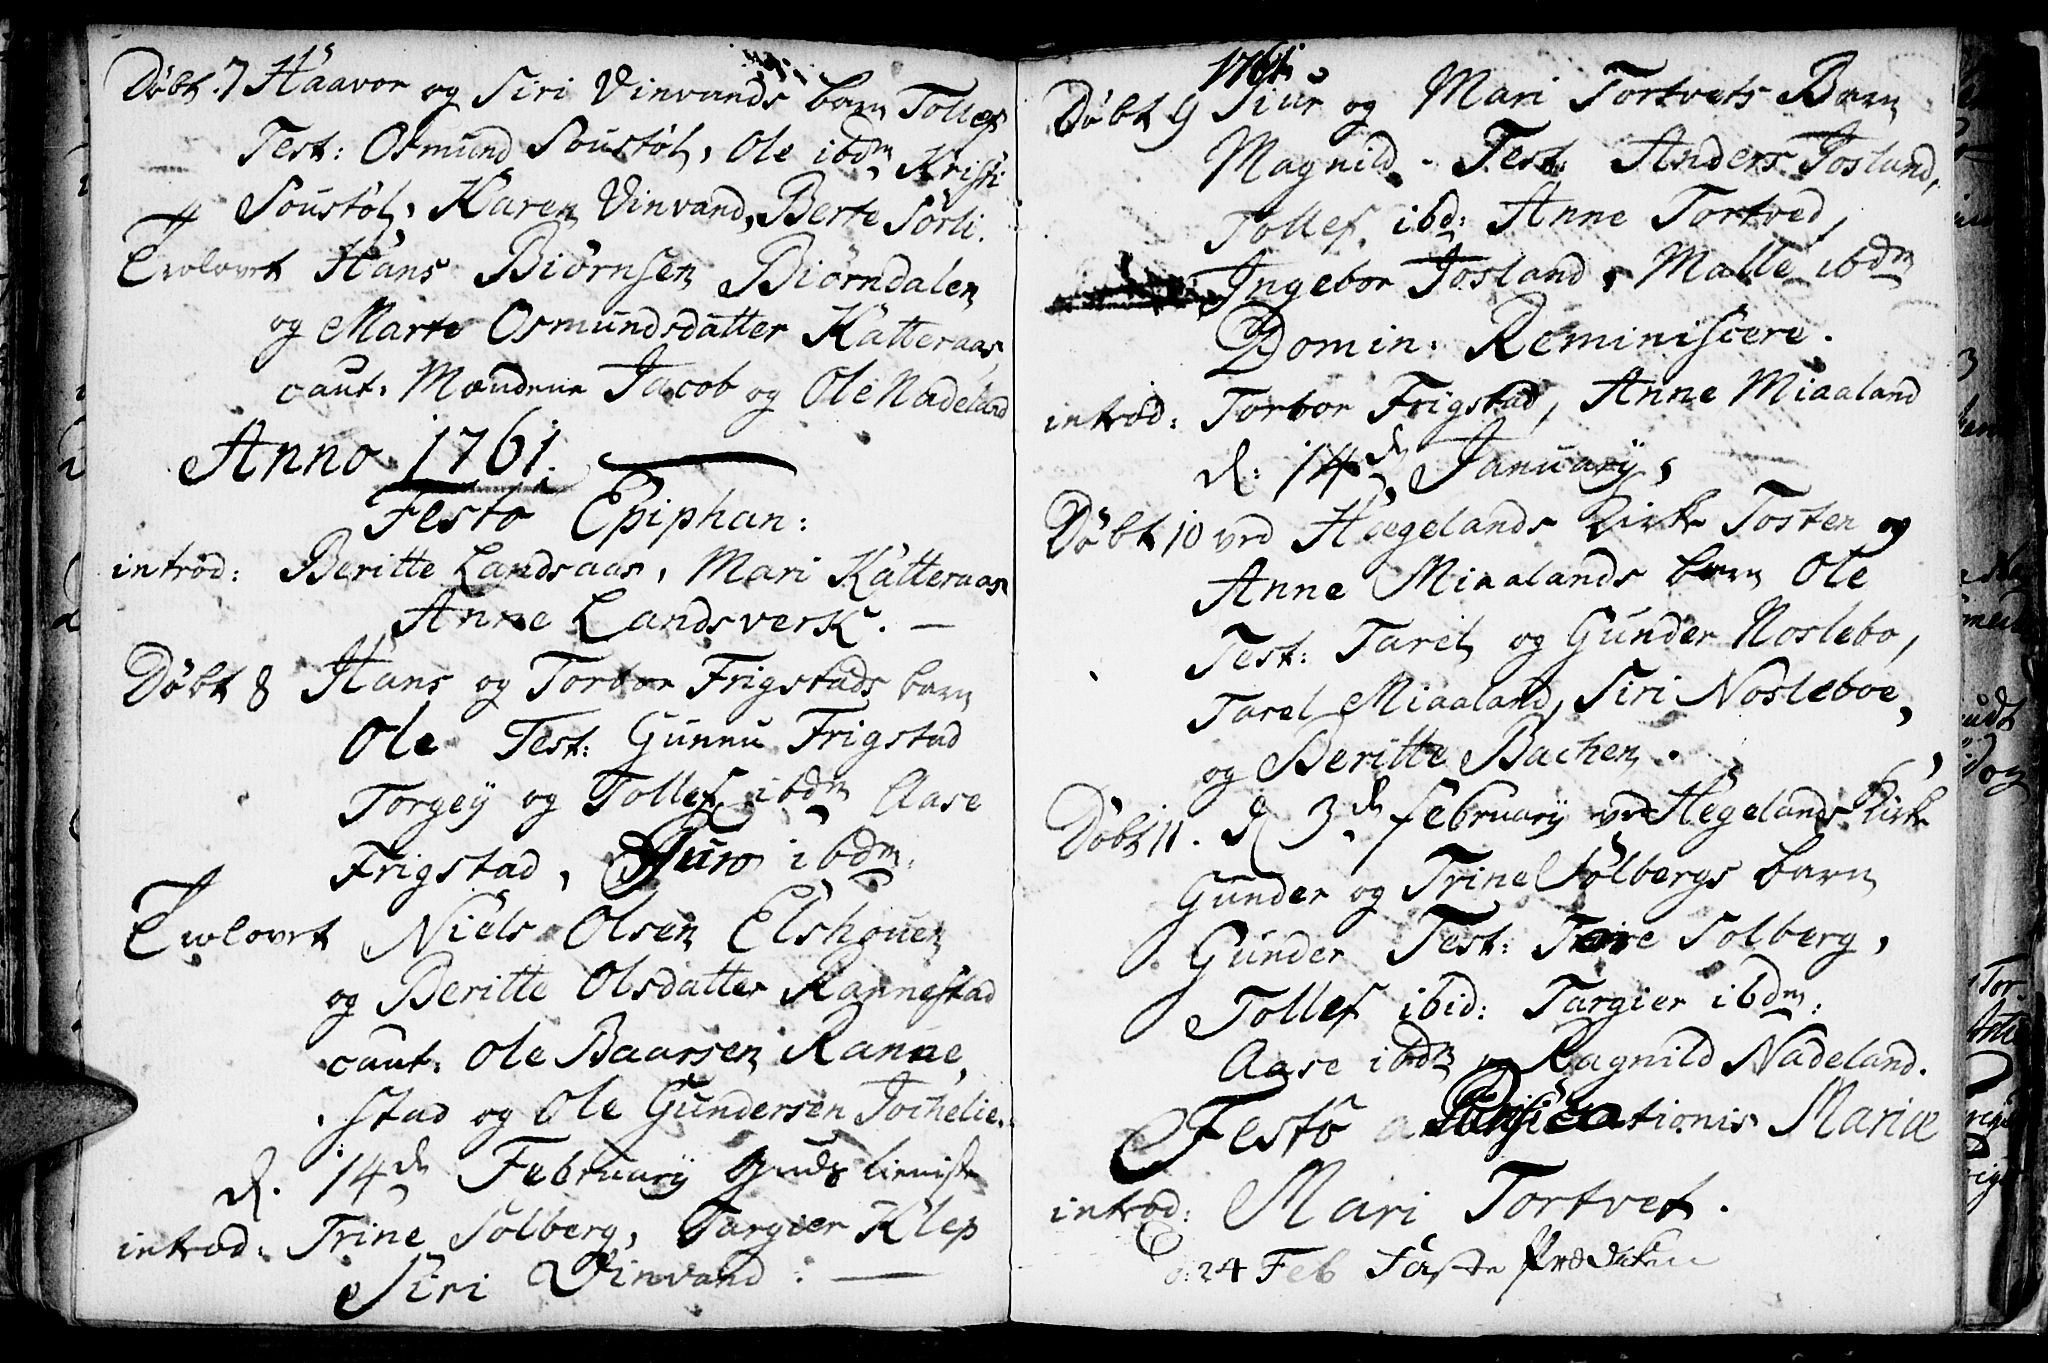 Døbt 7 Haavor og Siri Vinvands barn Tollef
Test: Osmund Soustøl, Ole ibdm Kristi
Soustøl, Karen Vinvand, Berte Sørli.
Trolovet Hans Biørnsen Biørndalen
og Marte Osmundsdatter Katteraas
caut: Mændene Jacob og Ole Nadeland
Anno 1761.
Festo Epiphan:
introd: Beritte Landsaas, Mari Katteraas
Anne Landsverk. —
Døbt 8 Hans og Torbor Frigstads barn
Ole Test: Gunnu Frigstad
Torgey og Tollef ibdm Aase
Frigstad, Guro ibdm:
Trolovet Niels Olsen Elshouen
og Beritte Olsdatter Rannestad
caut: Ole Baarsen Ranne,
stad og Ole Gundersen Jochelie.
d. 14dn February Guds tieniste
introd: Trine Solberg, Targier Klep
Siri Vinvand: —
1761.
Døbt 9 Siur og Mari Tortvets Barn
Magnild. Test: Anders Josland,
Tollef ibd: Anne Tortved,
Ingebor Josland, Malle ibdm
Domin: Reminiscere.
introd: Torbor Frigstad, Anne Miaaland
d: 14dn January,
Døbt 10 ved Hægelands Kirke Tosten og
Anne Miaalands barn Ole
Test: Tarel og Gunder Noslebo,
Tarel Miaaland, Siri Nosleboe,
og Beritte Bachen.
Døbt 11. d 3dn February ved Hegelands Kirke
Gunder og Trine Sølbergs barn
Gunder Test: Tore Solberg,
Tollef ibid: Targier ibdm:
Aase ibdm og Ragnild Nadeland.
Festo Purificationis Mariæ
introd: Mari Tortvet.
d: 24 Feb Faste Prædiken